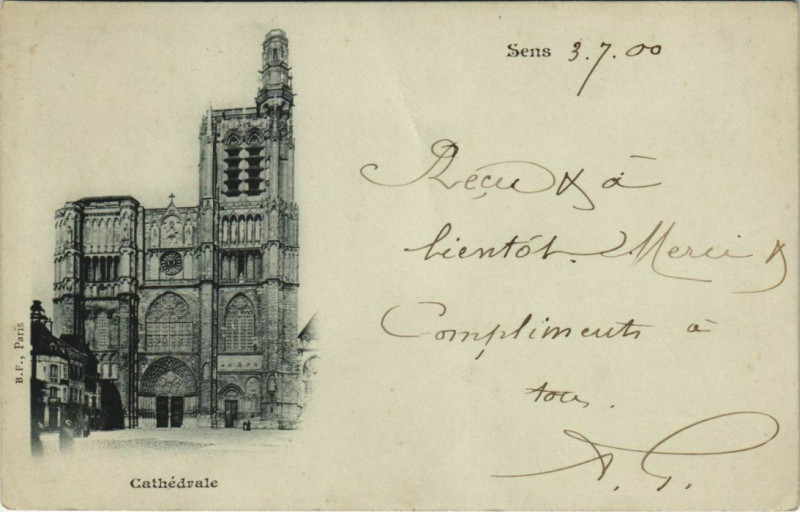 Sens 3.7.00
Reçu & à
bientôt. Merci &
Compliments à
tous.
A. G.
B.F., Paris
Cathédrale